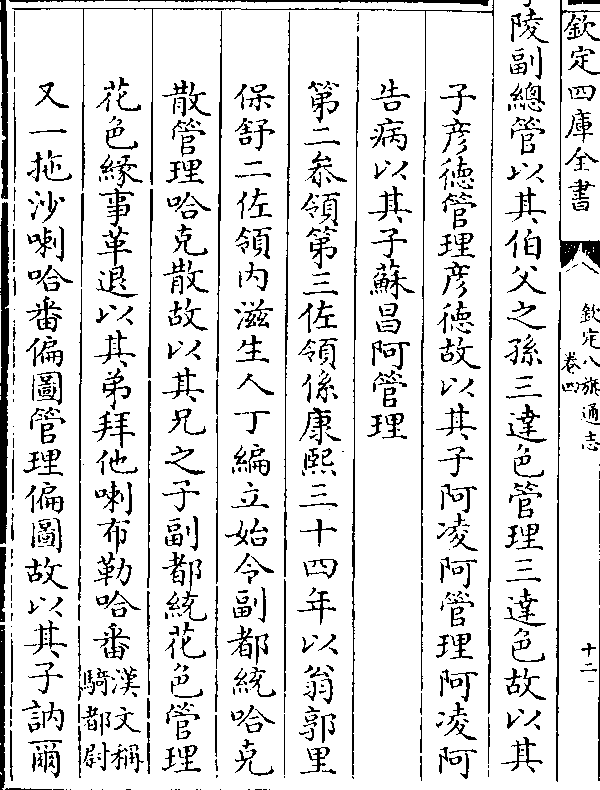 欽定四庫全書
欽定八旗通志
卷四
十二
陵副總管以其伯父之孫三達色管理三達色故以其
子彦徳管理彦徳故以其子阿凌阿管理阿凌阿
告病以其子蘇昌阿管理
第二叅領第三佐領係康熙三十四年以翁郭里
保舒二佐領内滋生人丁編立始令副都統哈克
散管理哈克散故以其兄之子副都統花色管理
花色縁事革退以其弟拜他喇布勒哈番漢文稱騎都尉
又一拖沙喇哈番偏圖管理偏圖故以其子訥爾